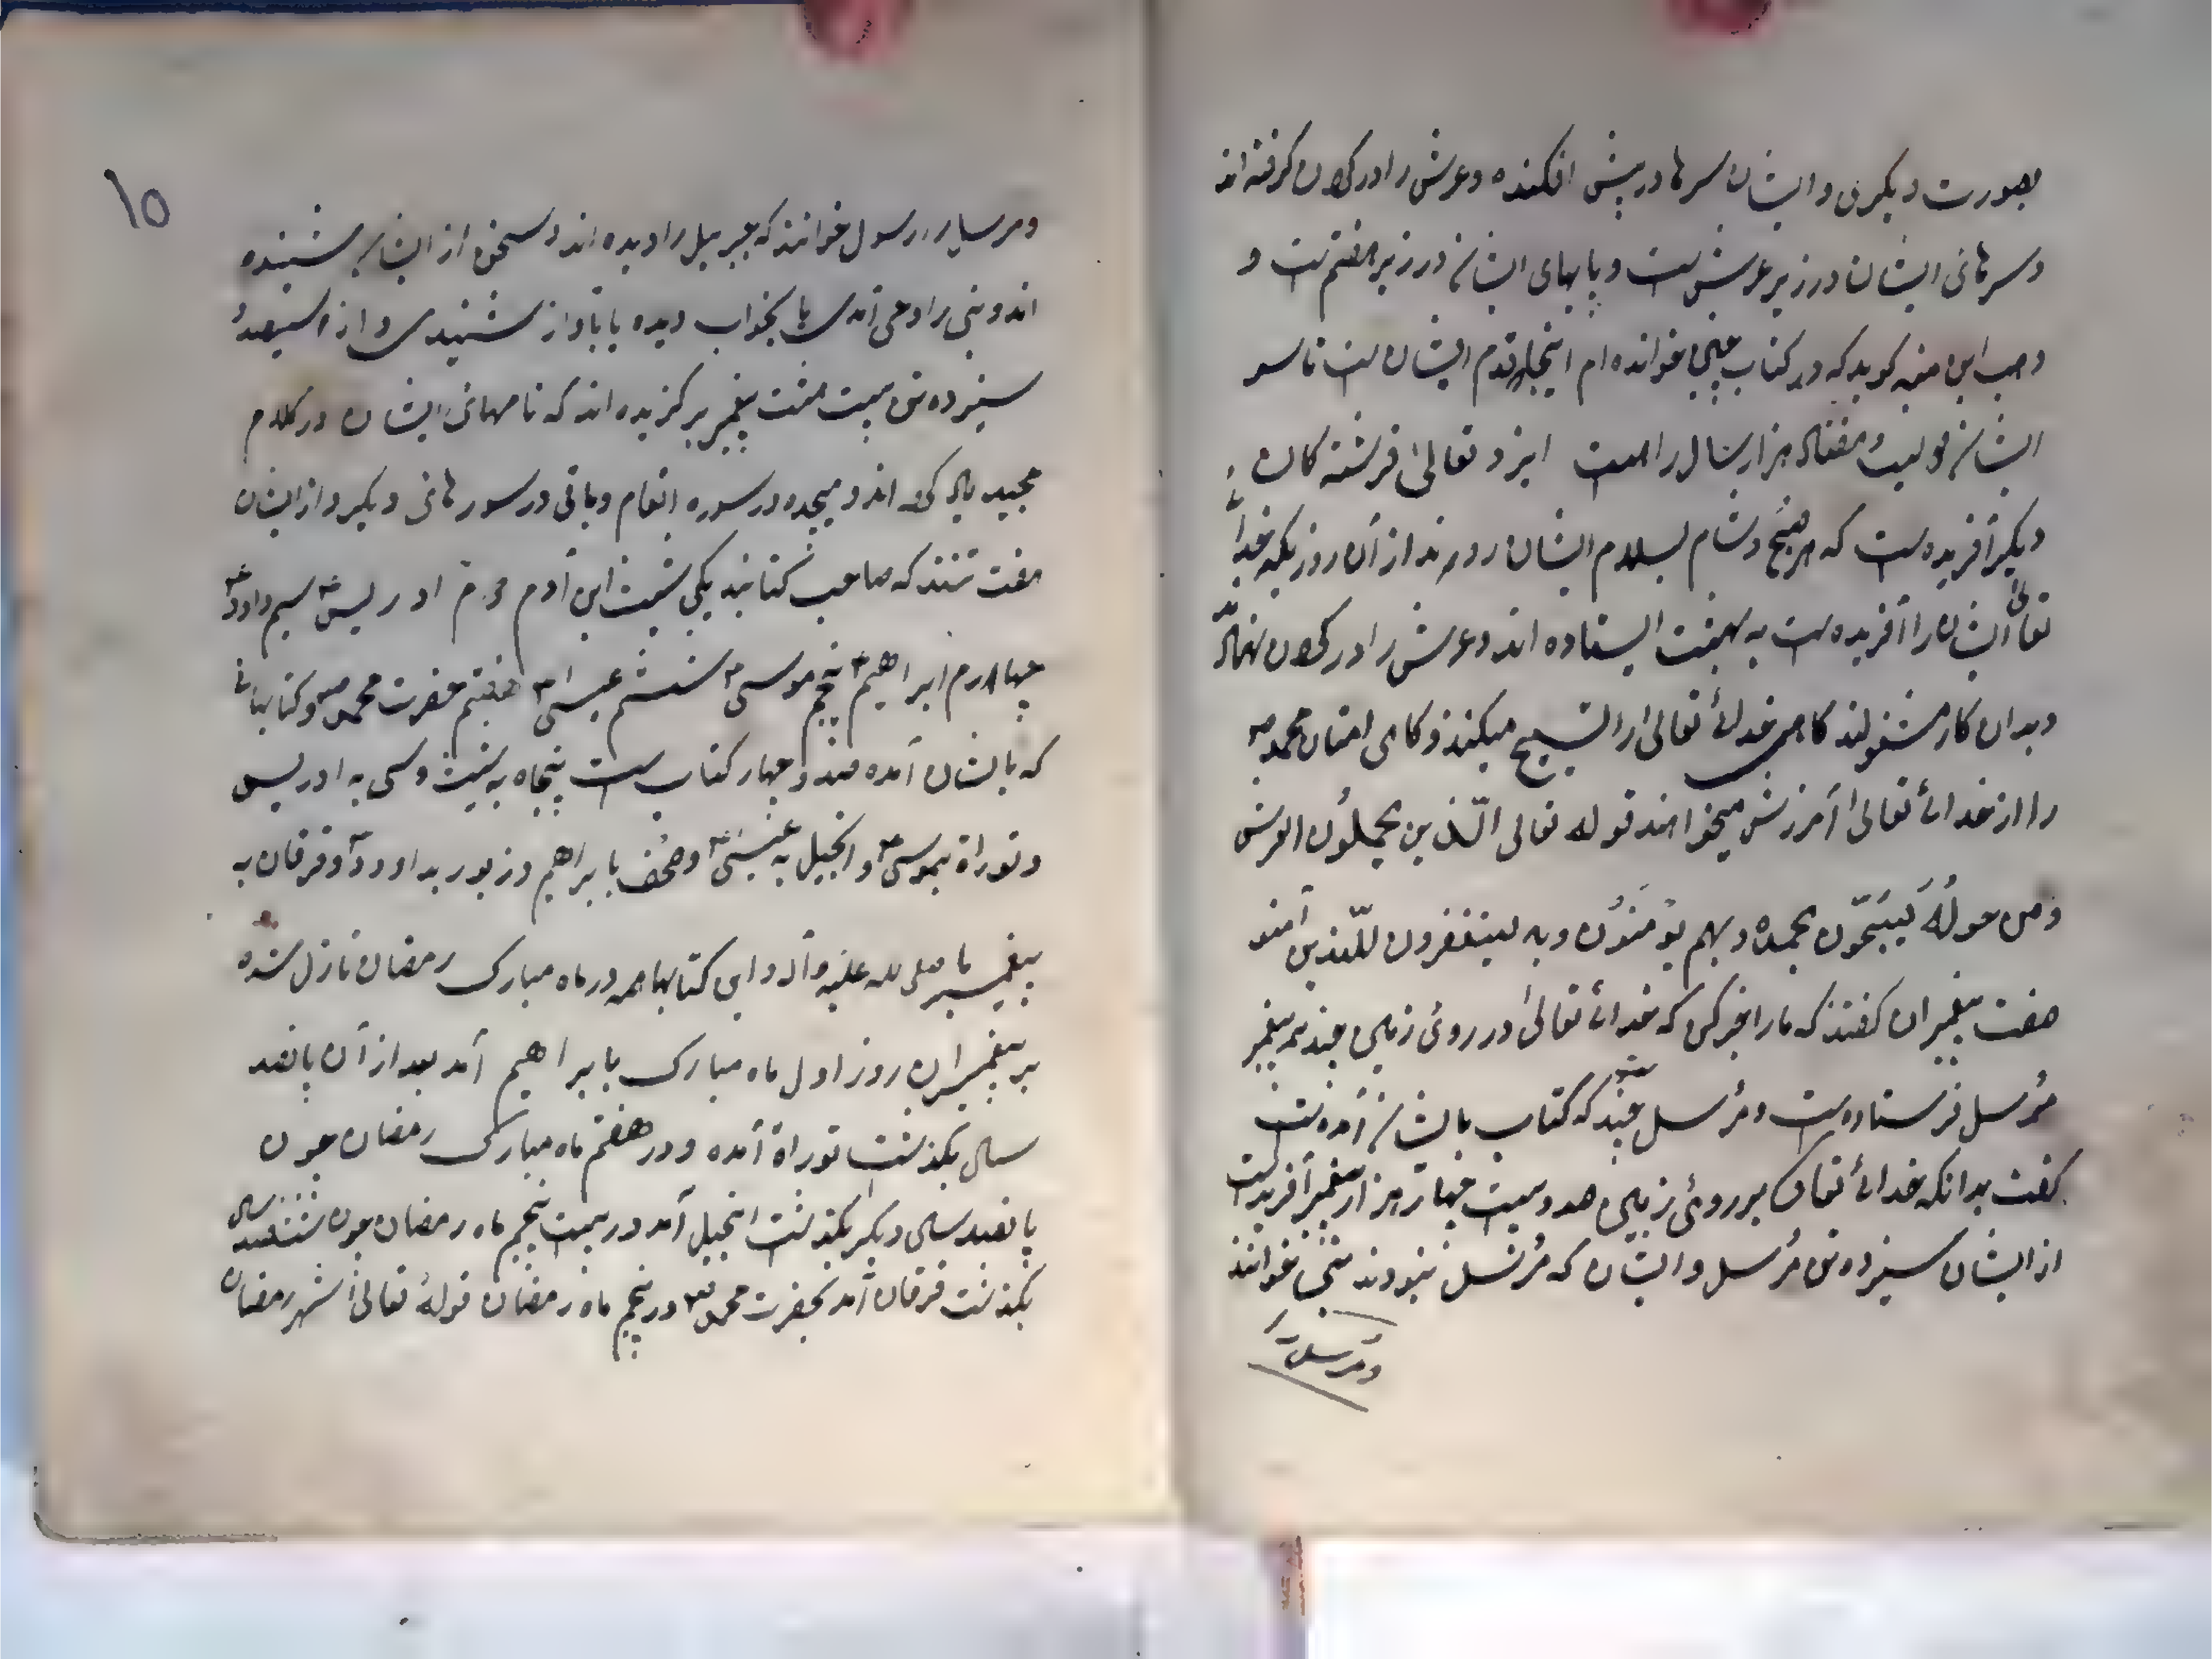 بصورت دیگری و ایشان سرها در پیش افکنده و عرش را در گرفته‌اند
و سرهای ایشان در زیر عرش است و پایهای ایشان در زیر هفتم است و
وهب ابن منبه گوید که در کتاب چنین خوانده‌ام اینجا قدم ایشان است تا سر
ایشان هفتاد هزار سال راهست ایزد تعالی فرشته کان
دیگر آفریده است که هر صبح و شام بسلام ایشان روند از آن روز یکه خدای
تعالی ایشان را آفریده است به ایستاده اند و عرش را در نهاده
و بدان کار مشغولند کاهی خدای تعالی را تسبیح میکنند و کاهی امتان محمد ص
را از خدای تعالی آمرزش میخواهند قوله تعالی الّذین یحملُون العرش
وَمن حولُهُ یُسَبّحُون بحمده و بهم یؤمنُون و به یستغفرون للّذین آمنو
هفت پیغمبران گفتند که ما را خبر کن که خدای تعالی در روی زمین چند پیغمبر
مُرسل فرستاده است و مُرسل چند که کتاب بایشان آمده است
گفت بدانکه خدای تعالی بر روی زمین صد و بیست چهار هزار پیغمبر آفریده است
از ایشان سیزده تن مُرسل و ایشان که مُرسل نبودند نبی خوانند
و مرسل را
۱۵
و مرسل را رسول خوانند که جبرییل را دیده اند و سخن از ایشان شنیده
اند و نبی را وحی آمدی یا بخواب دیده یا بآواز شنیدی و از سیصد
سیزده تن بیست هشت پیغمبر برگزیده اند که نامهای ایشان در کلام
مجید یاد اند و هیجده در سوره انعام و باقی در سورهای دیگر و از ایشان
هفت تنند که صاحب کتابند یکی شیث ابن آدم دوم ادریس سیم داود
چهارم ابراهیم پنجم موسی ششم عیسی هفتم حضرت محمد ص و کتابهای
که بایشان آمده صد و چهار کتاب است پنجاه به شیث و سی به ادریس
و توراة بموسی و انجیل به عیسی و صُحُف بابراهیم و زبور بداوود و فرقان به
پیغمبر ما صلی الله علیه و آله و این کتابها همه در ماه مبارک رمضان نازل شده
بر پیغمبران روز اول ماه مبارک بابراهیم آمد بعد از آن پانصد
سال بگذشت توراة آمده و در هفتم ماه مبارک رمضان چون
پانصد سال دیگر بگذشت انجیل آمد در بیست پنجم ماه رمضان چون ششصد سال
بگذشت فرقان آمد بحضرت محمد ص در پنجم ماه رمضان قولهُ تعالی شهر رمضان